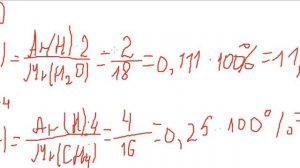 ) = Ar(H)·2 / Mr(H₂O) = 2/18 = 0,111·100% = 11,
4
) = Ar(H)·4 / Mr(CH₄) = 4/16 = 0,25·100% =